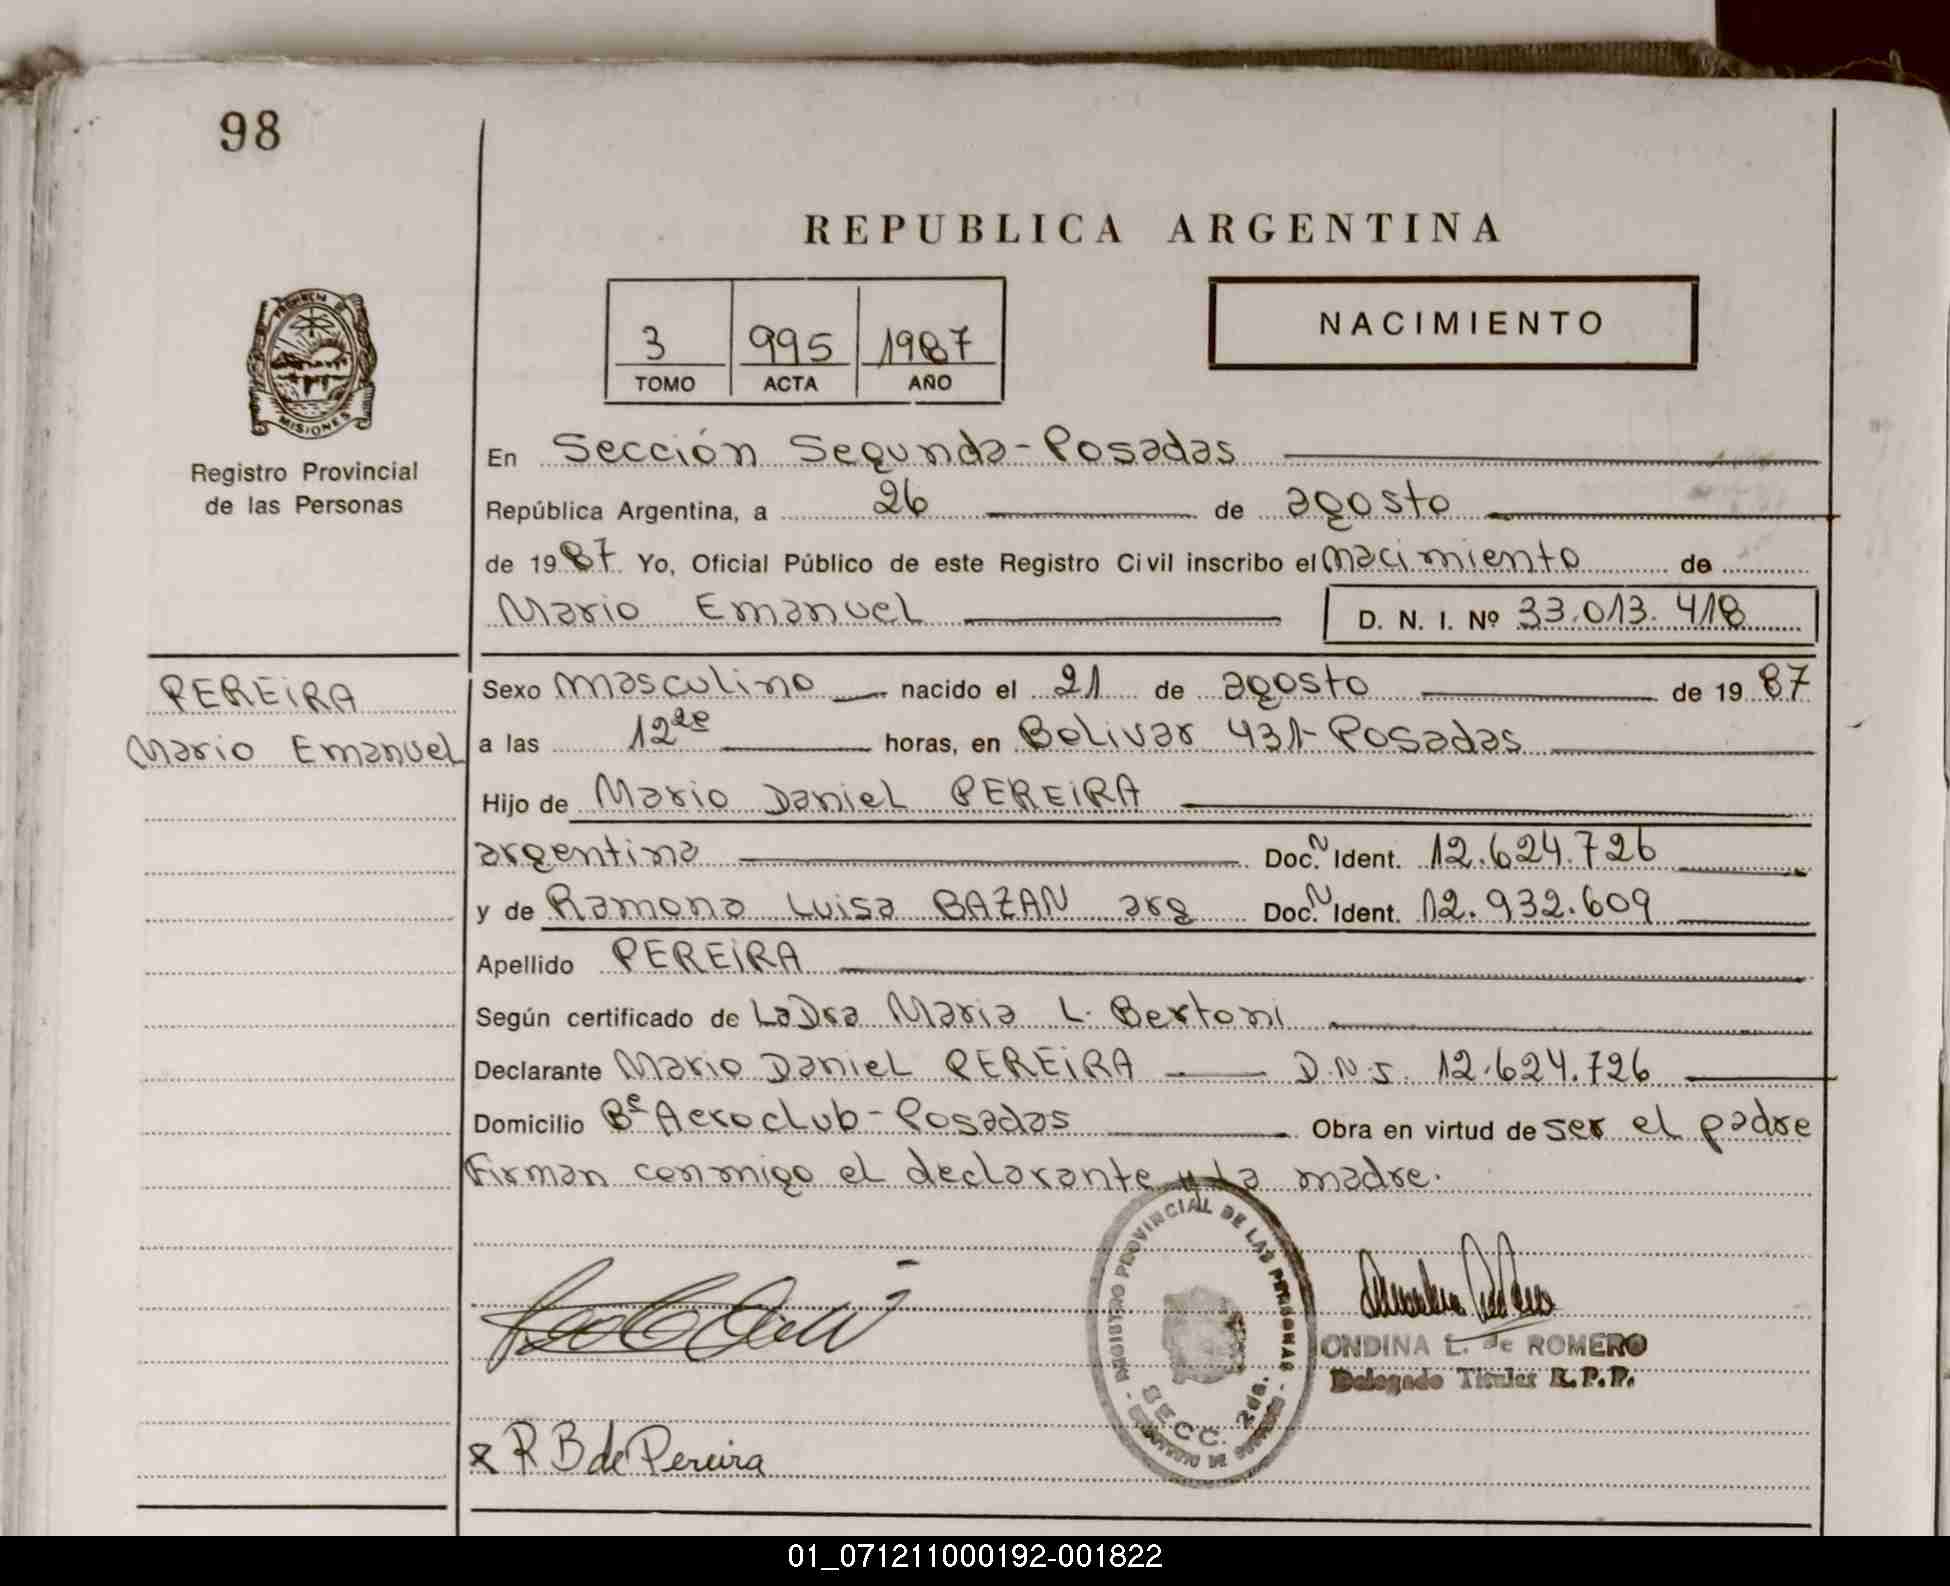 98
REPUBLICA ARGENTINA
3 995 1987
TOMO ACTA AÑO
NACIMIENTO
PROVINCIA DE
MISIONES
Registro Provincial
de las Personas
En Sección Segunda-Posadas
República Argentina, a 26 de agosto
de 1987 Yo, Oficial Público de este Registro Civil inscribo el nacimiento de
Mario Emanuel D. N. I. Nº 33.013.418
PEREIRA
Mario Emanuel
Sexo masculino nacido el 21 de agosto de 1987
a las 12 horas, en Bolivar 431-Posadas
Hijo de Mario Daniel PEREIRA
argentina Doc. N Ident. 12.624.726
y de Ramona Luisa BAZAN arg Doc. N Ident. 12.932.609
Apellido PEREIRA
Según certificado de La Dra Maria L. Bertoni
Declarante Mario Daniel PEREIRA D.N.I. 12.624.726
Domicilio Bº Aeroclub-Posadas Obra en virtud de ser el padre
Firman conmigo el declarante y la madre.
REGISTRO PROVINCIAL DE LAS PERSONAS
SECC. 2da.
ONDINA L. de ROMERO
Delegado Titular R.P.P.
R B de Pereira
01_071211000192-001822